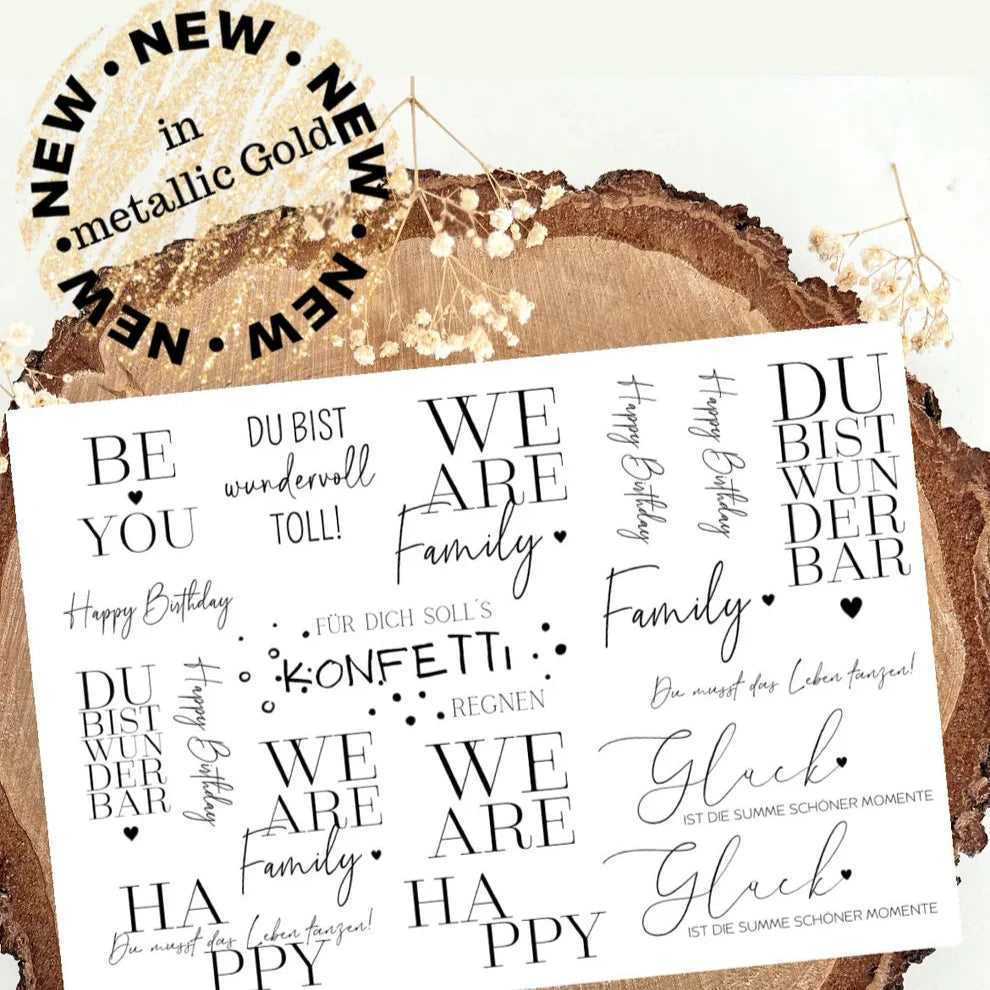 NEW • NEW • NEW • NEW • NEW • NEW • NEW •
in
metallic Gold
BE
YOU
DU BIST
wundervoll
TOLL!
WE
ARE
Family
Happy Birthday
Happy Birthday
DU
BIST
WUN
DER
BAR
Happy Birthday
FÜR DICH SOLL´S
KONFETTI
REGNEN
Family
Du musst das Leben tanzen!
DU
BIST
WUN
DER
BAR
Happy Birthday
WE
ARE
Family
WE
ARE
Glück
IST DIE SUMME SCHÖNER MOMENTE
Glück
IST DIE SUMME SCHÖNER MOMENTE
HA
Du musst das Leben tanzen!
PPY
HA
PPY